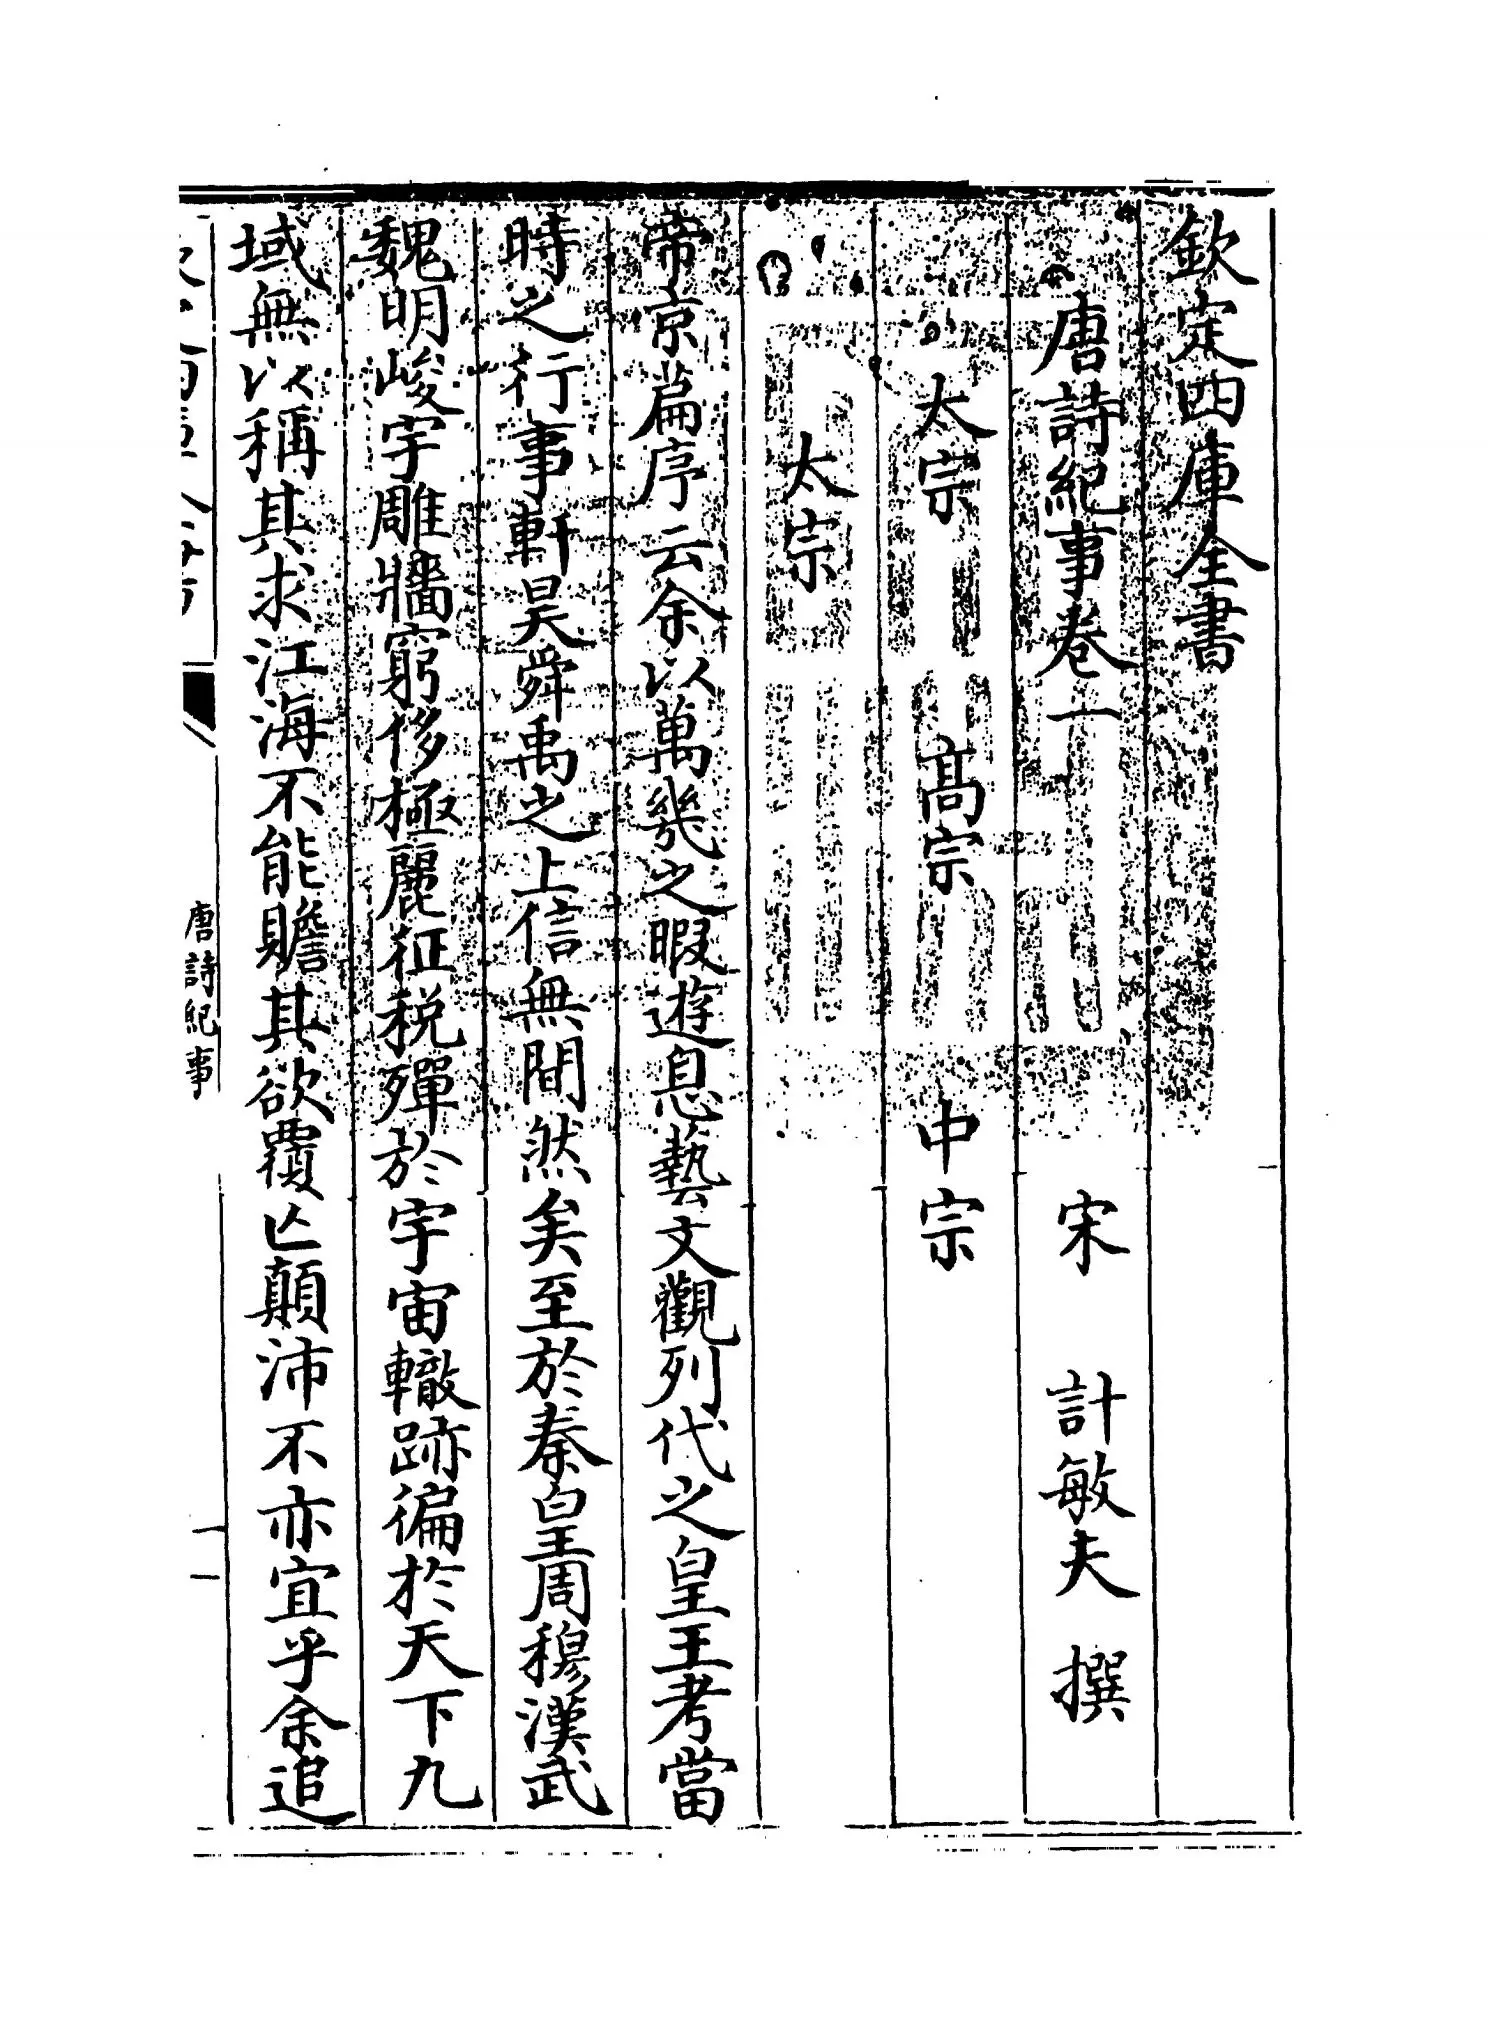 欽定四庫全書
唐詩紀事卷一
宋 計敏夫 撰
太宗 髙宗 中宗
太宗
帝京篇序云余以萬幾之暇遊息藝文觀列代之皇王考當
時之行事軒昊舜禹之上信無間然矣至於秦皇周穆漢武
魏明峻宇雕牆窮侈極麗征税殫於宇宙轍跡徧於天下九
域無以稱其求江海不能贍其欲覆亡顛沛不亦宜乎余追
唐詩紀事
一